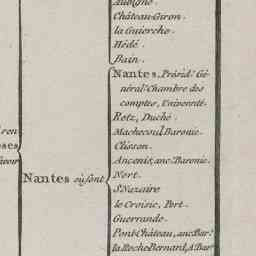 Aubigné.
Château-Giron.
la Guierche.
Hédé.
Bain.
Nantes, Présid.l Gé-
néral.té Chambre des
comptes, Université.
Retz, Duché.
Machecoul, Baronie.
Clisson.
Ancenis, anc.e Baronie.
Nantes où sont
Nort.
S.t Nazaire
le Croisic, Port.
Guerrande.
Pont-Château, anc. Bar.e
la Roche Bernard, A. Bar.e